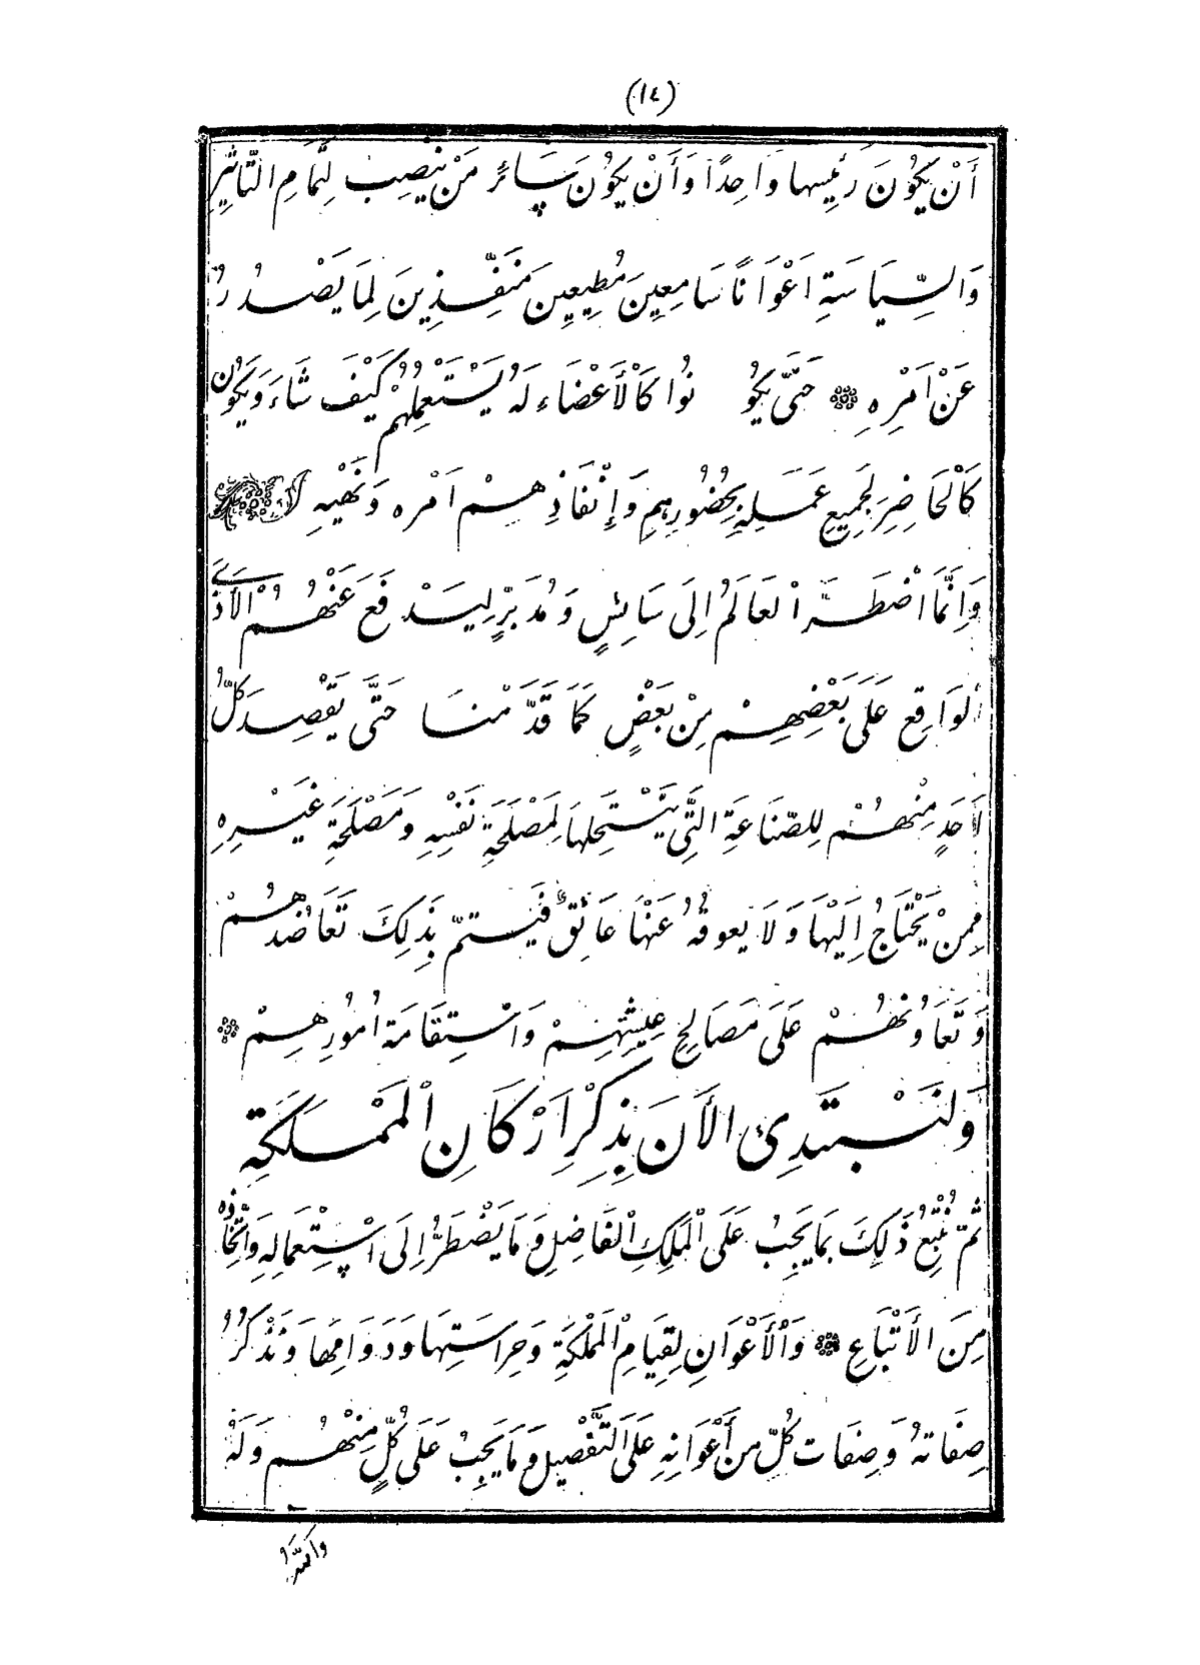 (١٤)
أَنْ يَكُونَ رَئِيسها وَاحِدًا وَأَنْ يَكُونَ سَائِرُ مَنْ يَنصِبُ لِتَمَامِ التَّاثِيرِ
وَالسِّيَاسَةِ اَعْوَانًا سَامِعِينَ مُطِيعِينَ مُنَفِّذِينَ لِمَا يَصْدُرُ
عَنْ اَمْرِهِ ۞ حَتَّى يَكُونُوا كَالْأَعْضَاءِ لَهُ يَسْتَعْمِلُهُمْ كَيْفَ شَاءَ وَيَكُونُ
كَالْحَاضِرِ لِجَمِيعِ عَمَلِهِ بِحُضُورِهِمْ وَإِنْفَاذِهِمْ اَمْره وَنَهْيِهِ
وَاِنَّمَا اضْطَرَّ الْعَالَمُ اِلَى سَائِسٍ وَمُدَبِّرٍ لِيَدْفَعَ عَنْهُمُ الْأَذَى
الوَاقِعِ عَلَى بَعْضِهِمْ مِنْ بَعْضٍ كَمَا قَدَّمْنَا حَتَّى يَقْصِدَ كُلُّ
اَحَدٍ مِنْهُمْ لِلصِّنَاعَةِ الَّتِي يَنْتَحِلهَا لِمَصْلَحَةِ نَفْسِهِ وَمَصْلَحَةِ غَيْرِهِ
مِمنْ يَحْتَاجُ اِلَيْهَا وَلَا يعوقُهُ عَنْهَا عَائِقٌ فَيَتمّ بِذَلِكَ تَعَاضُدهُمْ
وَتَعَاوُنهُمْ عَلَى مَصَالِحِ عِيشِتِهِمْ وَاسْتِقَامَةِ اُمُورِهِمْ ۞
وَلنَبْتَدِئ الأَنَ بِذِكْرِ اَرْكَانِ الْمَمْلَكَةِ
ثُمَّ نُتْبِعُ ذَلِكَ بِمَا يَجِبُ عَلَى الْمَلِكِ الْفَاضِلِ وَمَا يَضْطَرُّ اِلَى اسْتِعْمَالِهِ وَاتِّخَاذِه
مِنَ الأَتْبَاعِ ۞ وَالأَعْوَانِ لِقِيَامِ الْمَمْلَكَةِ وَحِرَاسَتِهَا وَدَوَامِهَا وَنَذْكُرُ
صِفَاتهُ وَصِفَات كُلّ مِن أَعْوَانِهِ عَلَى التَّفْصِيلِ وَمَا يَجِبُ عَلَى كُلٍّ مِنْهُم وَلَهُ